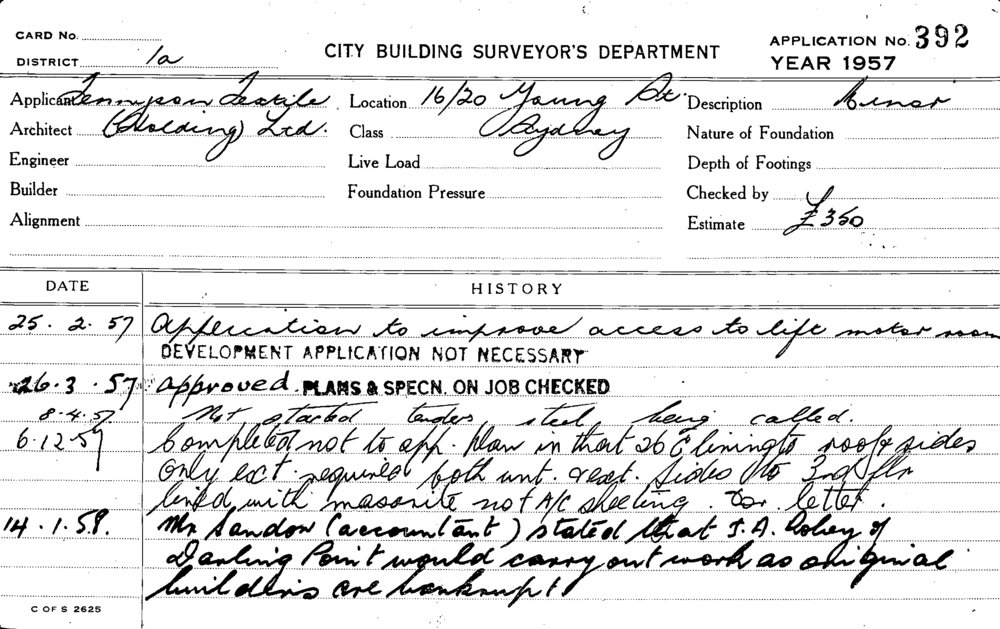 CARD No.
DISTRICT 1a
CITY BUILDING SURVEYOR'S DEPARTMENT
APPLICATION No. 392
YEAR 1957
Applicant Tennyson Textile
Location 16/20 Young St.
Description Minor
Architect (Holding) Ltd.
Class Sydney
Nature of Foundation
Engineer
Live Load
Depth of Footings
Builder
Foundation Pressure
Checked by
Alignment
Estimate £350
DATE HISTORY
25. 2. 57 Application to improve access to lift motor room
DEVELOPMENT APPLICATION NOT NECESSARY
26. 3. 57 approved. PLANS & SPECN. ON JOB CHECKED
8. 4. 57 Not started tenders steel being called.
6. 12. 57 Completed not to app. plan in that 26 G lining to roof & sides
only ext. required both int. & ext. Sides to 3rd flr
lined with masonite not A/C sheeting. letter.
14. 1. 58. Mr Sandow (accountant) stated that J.A. of
Darling Point would carry out work as original
builders are bankrupt
C OF S 2625